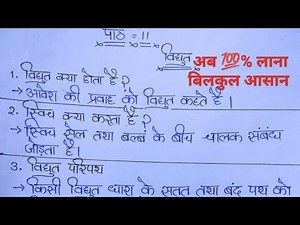 पाठ = 11
विद्युत
अब 100% लाना
बिलकुल आसान
1. विद्युत क्या होता है?
→ आवेश की प्रवाह को विद्युत कहते हैं।
2. स्विच क्या करता है?
→ स्विच सेल तथा बल्ब के बीच चालक संबंध
जोड़ता है।
3. विद्युत परिपथ
→ किसी विद्युत धारा के सतत तथा बंद पथ को